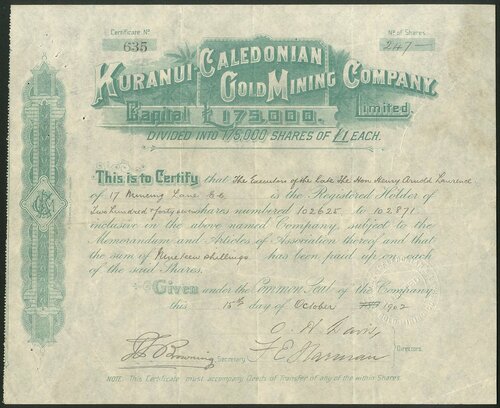 Certificate No
635
No of Shares
247—
KURANUI-CALEDONIAN
GOLD MINING COMPANY,
Limited.
Capital £175,000.
DIVIDED INTO 175,000 SHARES OF £1 EACH.
This is to Certify that The Executors of the late The Hon Henry Arnold Lawrence
of 17 Mincing Lane E.C. is the Registered Holder of
Two hundred & forty seven shares numbered 102625 to 102871
inclusive in the above named Company, subject to the
Memorandum and Articles of Association thereof and that
the sum of Nineteen shillings has been paid up on each
of the said Shares.
Given under the Common Seal of the Company
this 15th day of October 1902
Browning Secretary
Directors.
NOTE: This Certificate must accompany Deeds of Transfer of any of the within Shares.